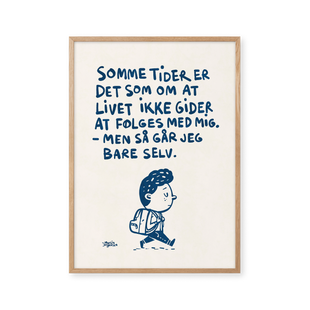 SOMME TIDER ER
DET SOM OM AT
LIVET IKKE GIDER
AT FØLGES MED MIG.
- MEN SÅ GÅR JEG
BARE SELV.